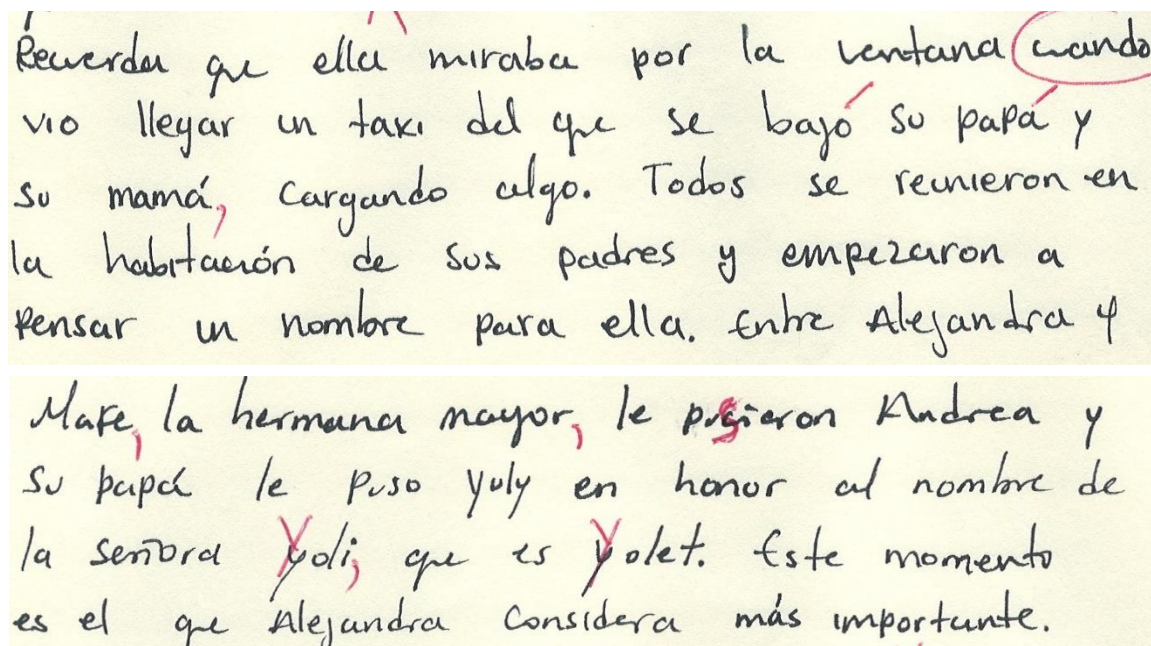 Recuerda que ella miraba por la ventana cuando
vio llegar un taxi del que se bajó su papá y
su mamá, cargando algo. Todos se reunieron en
la habitación de sus padres y empezaron a
pensar un nombre para ella. Entre Alejandra y
Mafe, la hermana mayor, le pusieron Andrea y
su papá le puso Yuly en honor al nombre de
la señora Yoli, que es Yolet. Este momento
es el que Alejandra considera más importante.